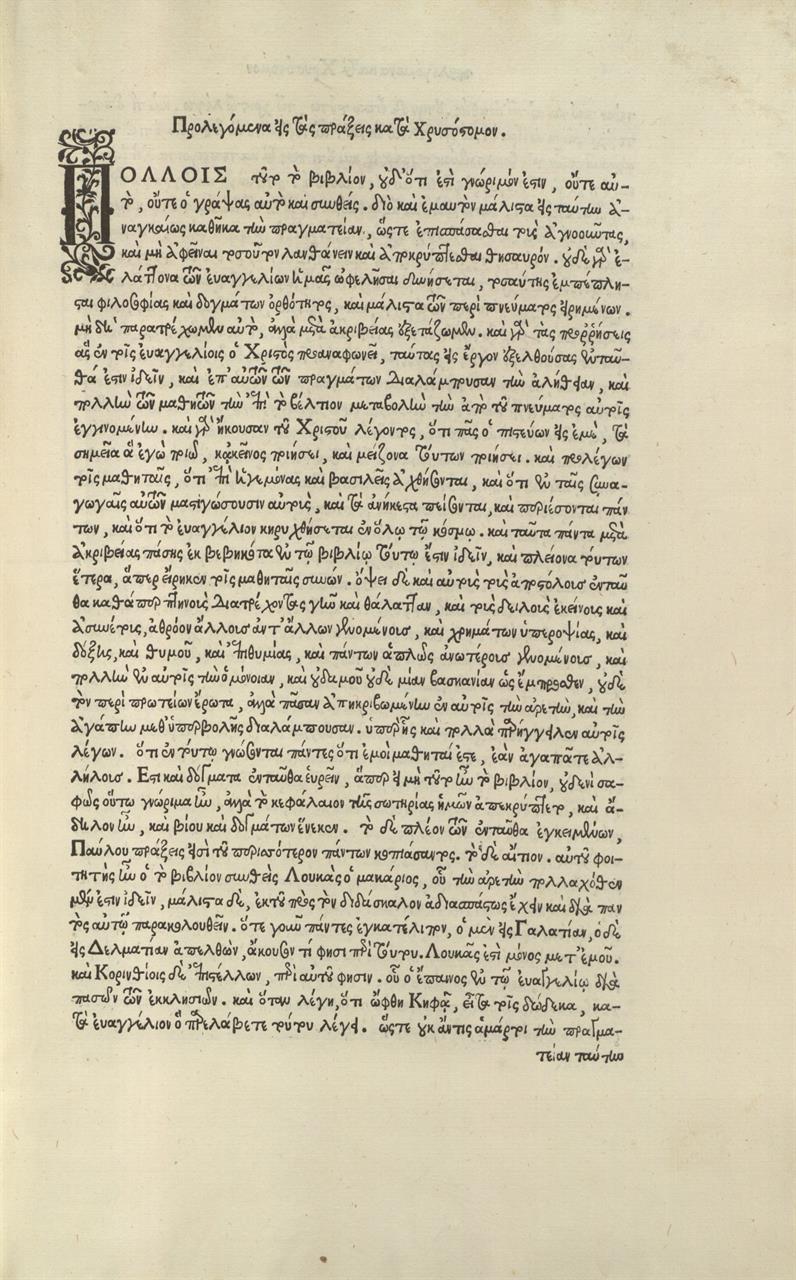 Προλεγόμενα εἰς τὰς πράξεις κατὰ Χρυσόστομον.
ΠΟΛΛΟΙΣ τοῦτο τὸ βιβλίον, οὐδ' ὅτι ἐστὶ γνώριμόν ἐστιν, οὔτε αὐ-
τὸ, οὔτε ὁ γράψας αὐτὸ καὶ συνθείς. διὸ καὶ ἐμαυτὸν μάλιστα εἰς ταύτην ἀ-
ναγκαίως καθῆκα τὴν πραγματείαν, ὥστε ἐπισπάσασθαι τοὺς ἀγνοοῦντας,
καὶ μὴ ἀφεῖναι τοσοῦτον λανθάνειν καὶ ἀποκρύπτεσθαι θησαυρόν. οὐδὲ γὰρ ἐ-
λάττονα τῶν ἐυαγγελίων ἡμᾶς ὠφελῆσαι δυνήσεται, τοσαύτης ἐμπέπλη-
σται φιλοσοφίας καὶ δογμάτων ὀρθότητος, καὶ μάλιστα τῶν περὶ πνεύματος εἰρημένων.
μὴ δὴ παρατρέχωμεν αὐτὸ, ἀλλὰ μετὰ ἀκριβείας ἐξετάζωμεν. καὶ γὰρ τὰς προῤῥήσεις
ἃς ἐν τοῖς ἐυαγγελίοις ὁ Χριστὸς προαναφωνεῖ, ταύτας εἰς ἔργον ἐξελθούσας ἐνταῦ-
θά ἐστιν ἰδεῖν, καὶ ἐπ' αὐτῶν τῶν πραγμάτων διαλάμπουσαν τὴν ἀλήθειαν, καὶ
πολλὴν τῶν μαθητῶν τὴν ἐπὶ τὸ βέλτιον μεταβολὴν τὴν ἀπὸ τοῦ πνεύματος αὐτοῖς
ἐγγινομένην. καὶ γὰρ ἤκουσαν τοῦ Χριστοῦ λέγοντος, ὅτι πᾶς ὁ πιστεύων εἰς ἐμὲ, τὰ
σημεῖα ἃ ἐγὼ ποιῶ, κἀκεῖνος ποιήσει, καὶ μείζονα τούτων ποιήσει. καὶ προλέγων
τοῖς μαθηταῖς, ὅτι ἐπὶ ἡγεμόνας καὶ βασιλεῖς ἀχθήσονται, καὶ ὅτι ἐν ταῖς συνα-
γωγαῖς αὐτῶν μαστιγώσουσιν αὐτοὺς, καὶ τὰ ἀνήκεστα πείσονται, καὶ περιέσονται πάν
των, καὶ ὅτι τὸ ἐυαγγέλιον κηρυχθήσεται ἐν ὅλῳ τῷ κόσμῳ. καὶ ταῦτα πάντα μετὰ
ἀκριβείας πάσης ἐκβεβηκότα ἐν τῷ βιβλίῳ τούτῳ ἔστιν ἰδεῖν, καὶ πλείονα τούτων
ἕτερα, ἅπερ εἴρηκεν τοῖς μαθηταῖς συνών. ὄψει δὲ καὶ αὐτοὺς τοὺς ἀποστόλους ἐνταῦ
θα καθάπερ πτηνοὺς διατρέχοντας γῆν καὶ θάλατταν, καὶ τοὺς δειλοὺς ἐκείνους καὶ
ἀσυνέτους, ἀθρόον ἄλλους ἀντ' ἄλλων γενομένους, καὶ χρημάτων ὑπεροψίας, καὶ
δόξης, καὶ θυμοῦ, καὶ ἐπιθυμίας, καὶ πάντων ἁπλῶς ἀνωτέρους γενομένους, καὶ
πολλὴν ἐν αὐτοῖς τὴν ὁμόνοιαν, καὶ οὐδαμοῦ οὐδὲ μίαν βασκανίαν ὡς ἔμπροσθεν, οὐδὲ
τὸν περὶ πρωτείων ἔρωτα, ἀλλὰ πᾶσαν ἀπηκριβωμένην ἐν αὐτοῖς τὴν ἀρετὴν, καὶ τὴν
ἀγάπην μεθ' ὑπερβολῆς διαλάμπουσαν. ὑπὲρ ἧς καὶ πολλὰ παρήγγειλεν αὐτοῖς
λέγων. ὅτι ἐν τούτῳ γνώσονται πάντες ὅτι ἐμοὶ μαθηταί ἐστε, ἐὰν ἀγαπᾶτε ἀλ-
λήλους. Ἔστι καὶ δόγματα ἐνταῦθα ἑυρεῖν, ἅπερ εἰ μὴ τοῦτο ἦν τὸ βιβλίον, οὐδενὶ σα-
φῶς οὕτω γνώριμα ἦν, ἀλλὰ τὸ κεφάλαιον τῆς σωτηρίας ἡμῶν ἀπεκρύπτετο, καὶ ἄ-
δηλον ἦν, καὶ βίου καὶ δογμάτων ἕνεκεν. τὸ δὲ πλέον τῶν ἐνταῦθα ἐγκειμένων,
Παύλου πράξεις εἰσὶ τοῦ περισσότερον πάντων κοπιάσαντος. τὸ δὲ αἴτιον. αὐτοῦ φοι-
τητὴς ἦν ὁ τὸ βιβλίον συνθεὶς Λουκᾶς ὁ μακάριος, οὗ τὴν ἀρετὴν πολλαχόθεν
μέν ἐστιν ἰδεῖν, μάλιστα δὲ, ἐκ τοῦ πρὸς τὸν διδάσκαλον ἀδιασπάστως ἔχειν καὶ διὰ παν
τὸς αὐτῷ παρακολουθεῖν. ὅτε γοῦν πάντες ἐγκατέλιπον, ὁ μὲν εἰς Γαλατίαν, ὁ δὲ
εἰς Δελματίαν ἀπελθὼν, ἄκουσον τί φησι περὶ τούτου. Λουκᾶς ἐστὶ μόνος μετ' ἐμοῦ.
καὶ Κορινθίοις δὲ ἐπιστέλλων, περὶ αὐτοῦ φησιν. οὗ ὁ ἔπαινος ἐν τῷ ἐυαγγελίῳ διὰ
πασῶν τῶν ἐκκλησιῶν. καὶ ὅταν λέγῃ, ὅτι ὤφθη Κηφᾷ, εἶτα τοῖς δώδεκα, κα-
τὰ ἐυαγγέλιον ὃ παρελάβετε τούτου λέγει. ὥστε οὐκ ἄν τις ἁμάρτοι τὴν πραγμα-
τείαν ταύτην